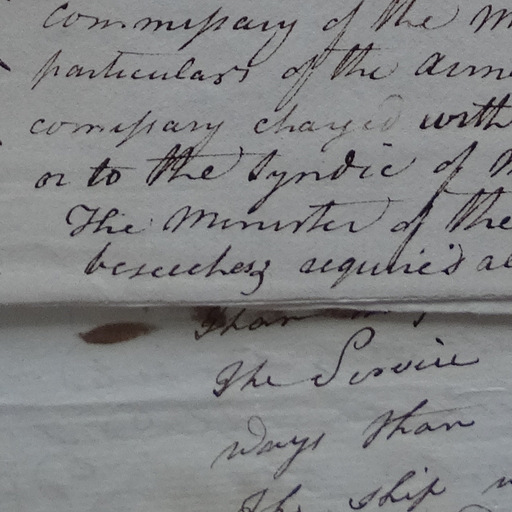 commissary of the M
particulars of the arme
commissary charged with
or to the Syndic of
The Minister of the
beseeches, requires al
than
the Service
ways than
the ship